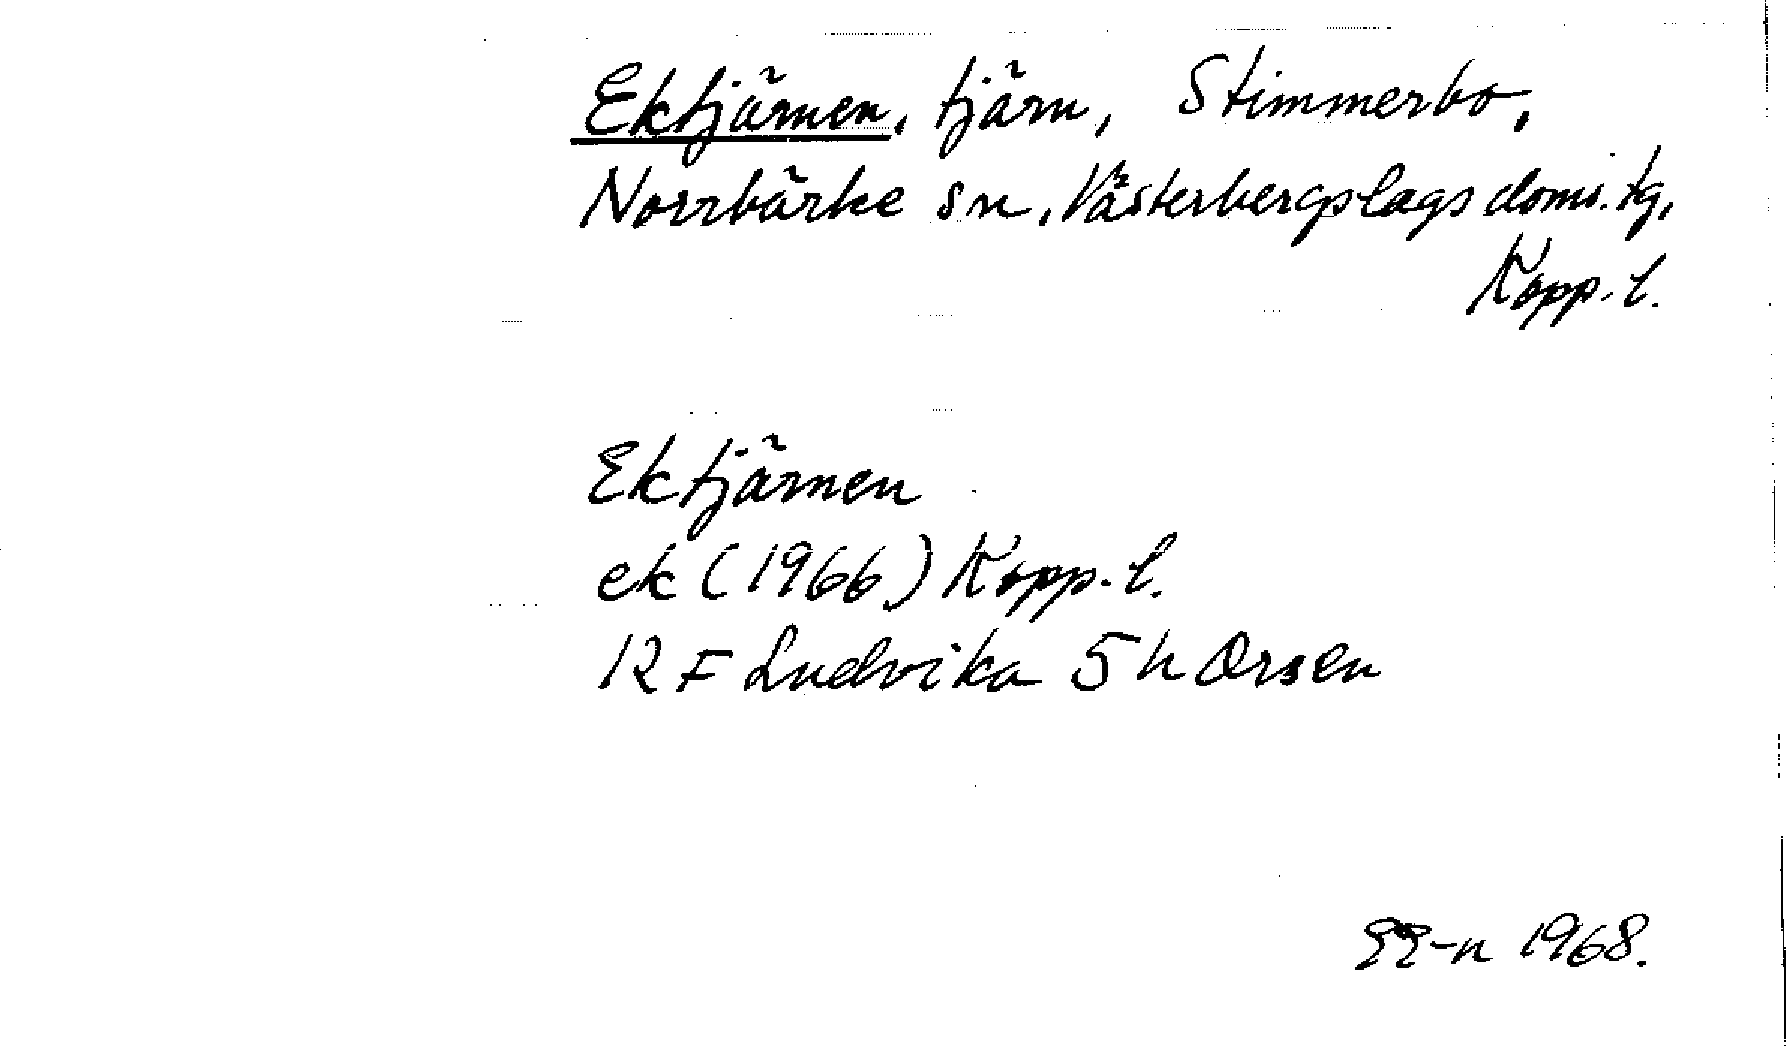 Ektjärnen, tjärn, Stimmerbo,
Norrbärke sn, Västerbergslags doms. tg,
Kopp. l.
Ektjärnen
ek (1966) Kopp. l.
12 F Ludvika 5 h Orsen
EE-n 1968.